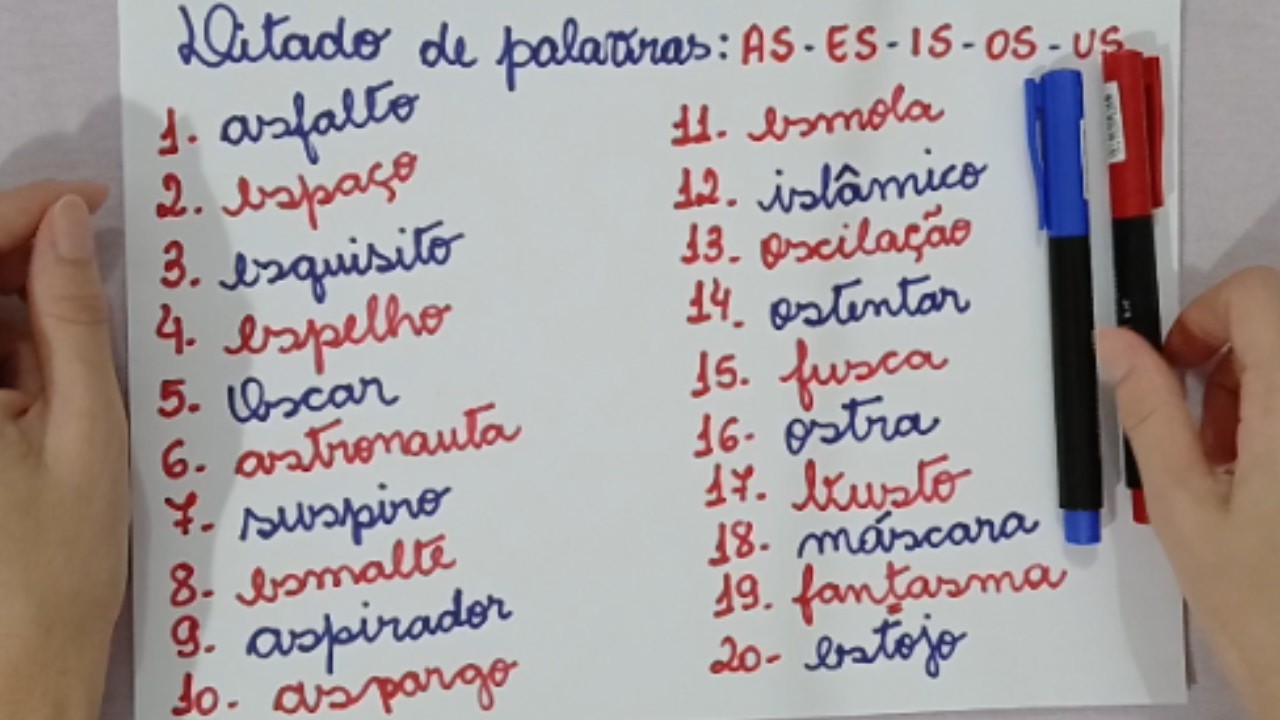 Ditado de palavras: AS - ES - IS - OS - US
1. asfalto
2. espaço
3. esquisito
4. espelho
5. Oscar
6. astronauta
7. suspiro
8. esmalte
9. aspirador
10. aspargo
11. esmola
12. islâmico
13. oscilação
14. ostentar
15. fusca
16. ostra
17. busto
18. máscara
19. fantasma
20- estojo